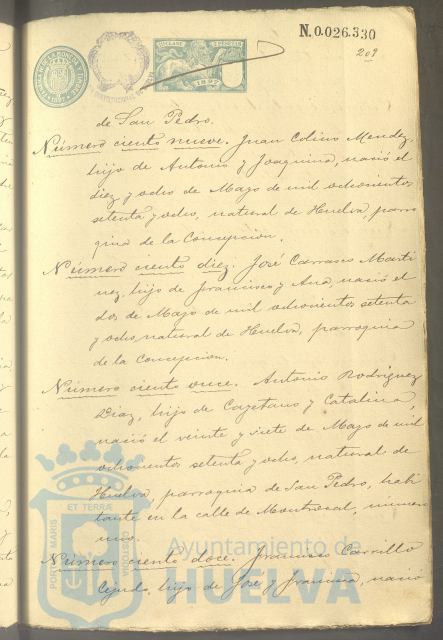 N. 0.026.330
209
1897
de San Pedro.
Número ciento nueve. Juan Colino Mendez,
hijo de Antonio y Joaquina, nació el
diez y ocho de Mayo de mil ochocientos
setenta y ocho, natural de Huelva, parro
quia de la Concepcion.
Número ciento diez. José Carrasco Marti
nez, hijo de Francisco y Ana, nació el
dos de Mayo de mil ochocientos setenta
y ocho, natural de Huelva, parroquia
de la Concepcion.
Número ciento once. Antonio Rodriguez
Diaz, hijo de Cayetano y Catalina,
nació el veinte y siete de Mayo de mil
ochocientos setenta y ocho, natural de
Huelva, parroquia de San Pedro, habi
tante en la calle de Montrocal, número
uno.
Número ciento doce. Francisco Carrillo
hijo de José y Francisca, nació
PORTUS MARIS
ET TERRÆ
Ayuntamiento de
HUELVA